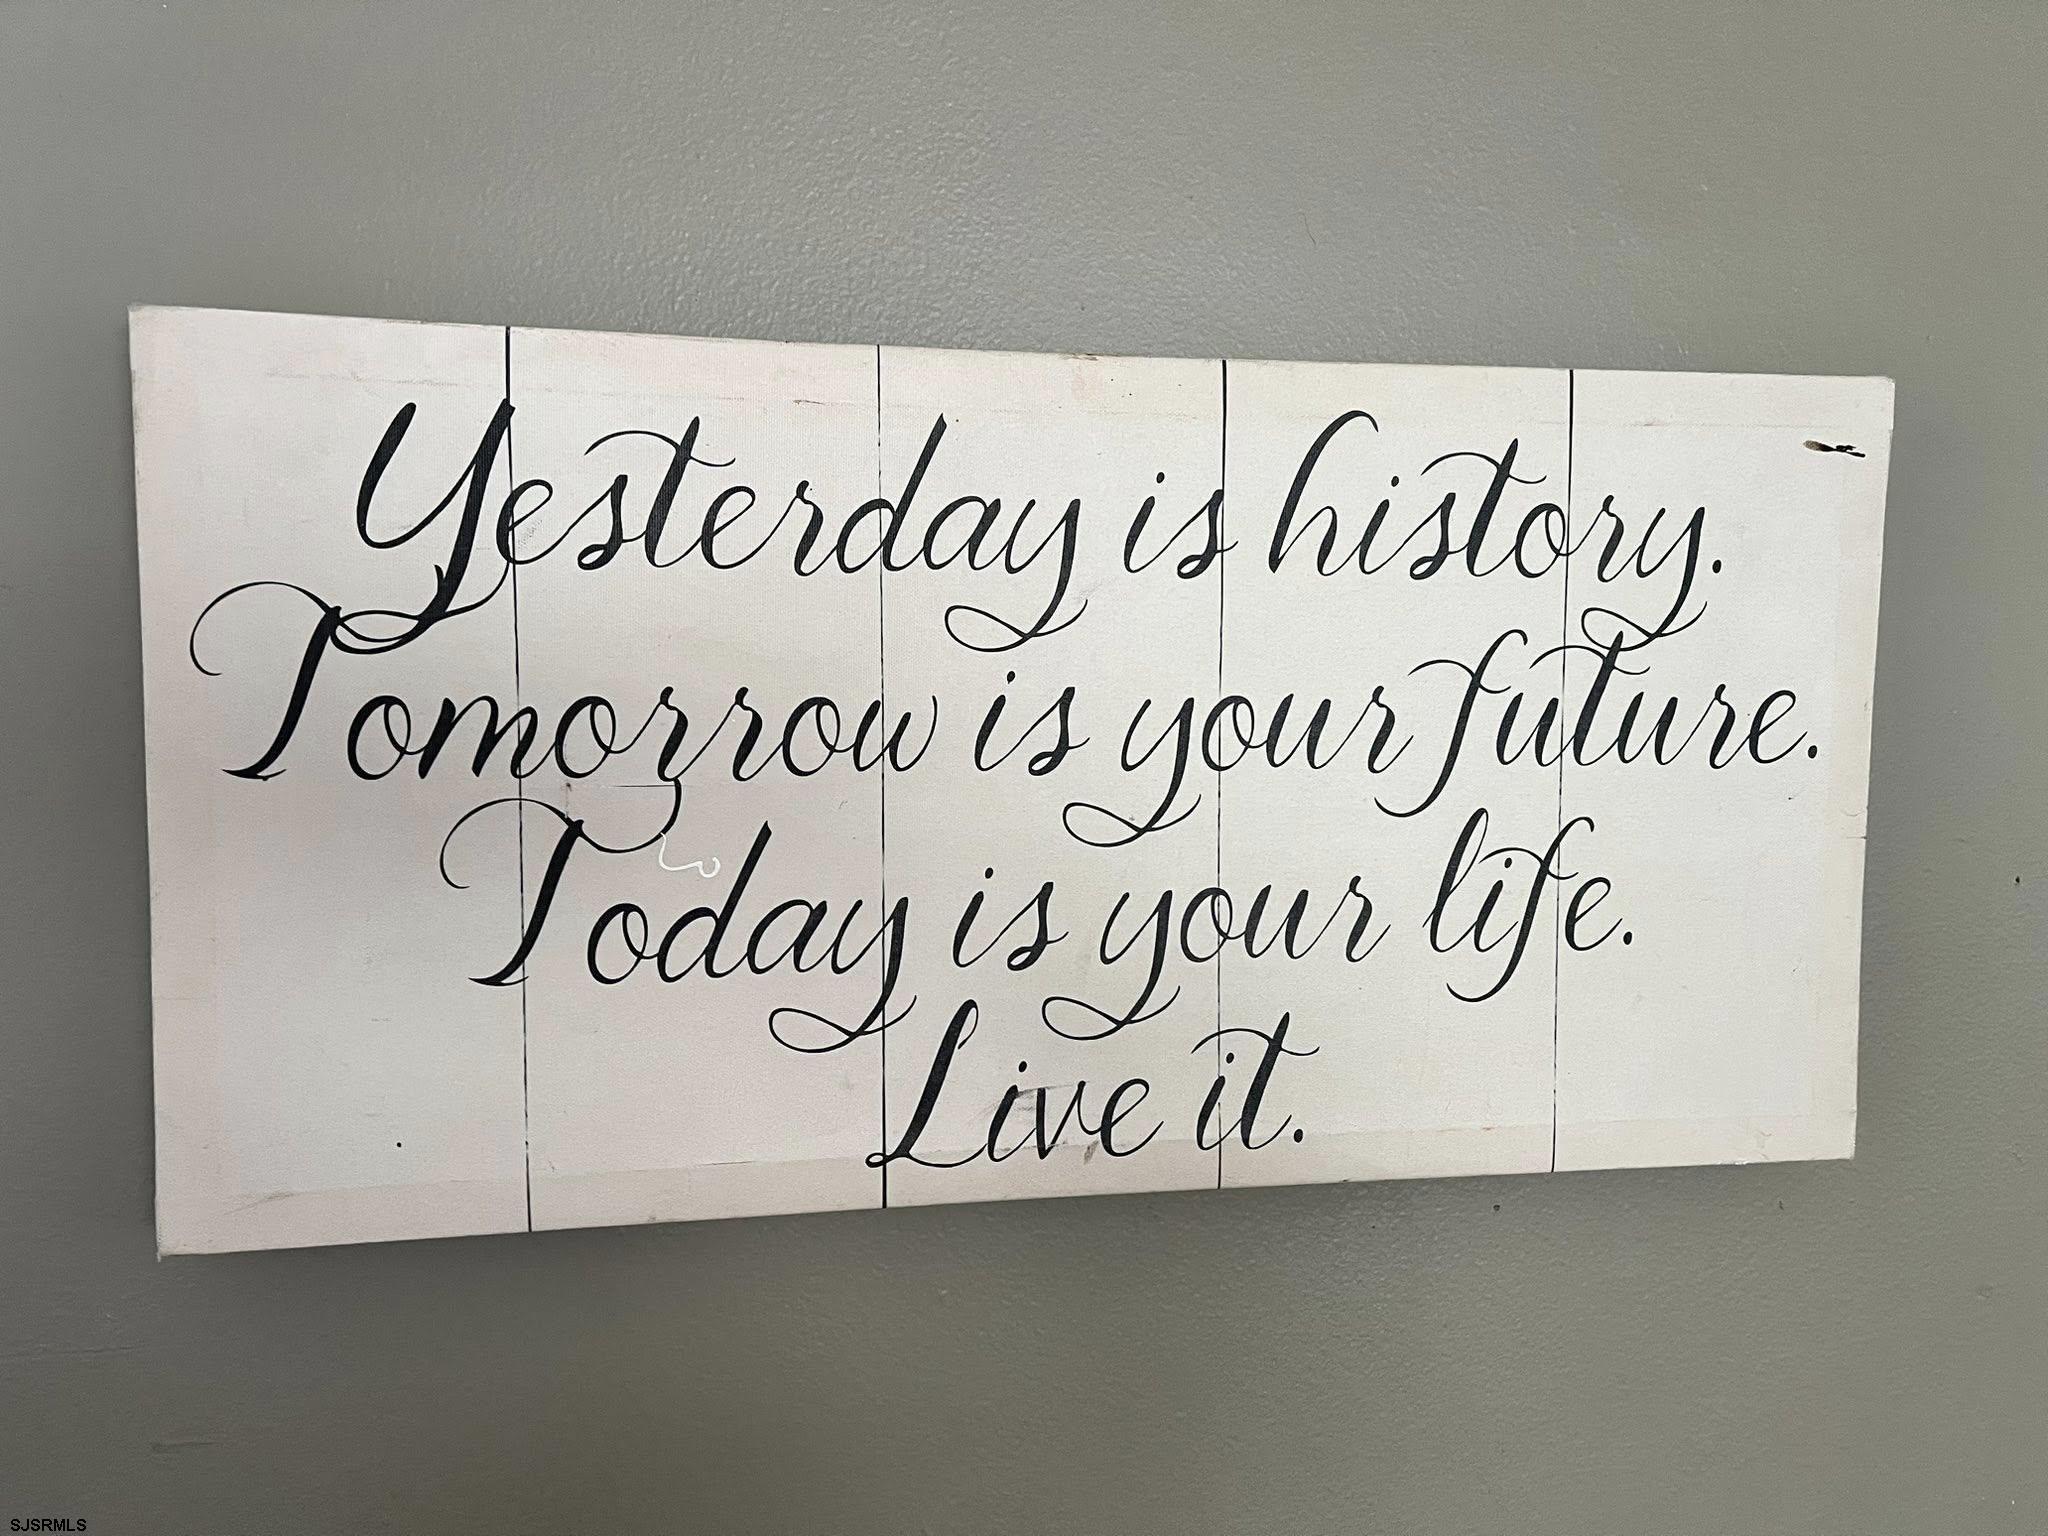 Yesterday is history.
Tomorrow is your future.
Today is your life.
Live it.
SJSRMLS